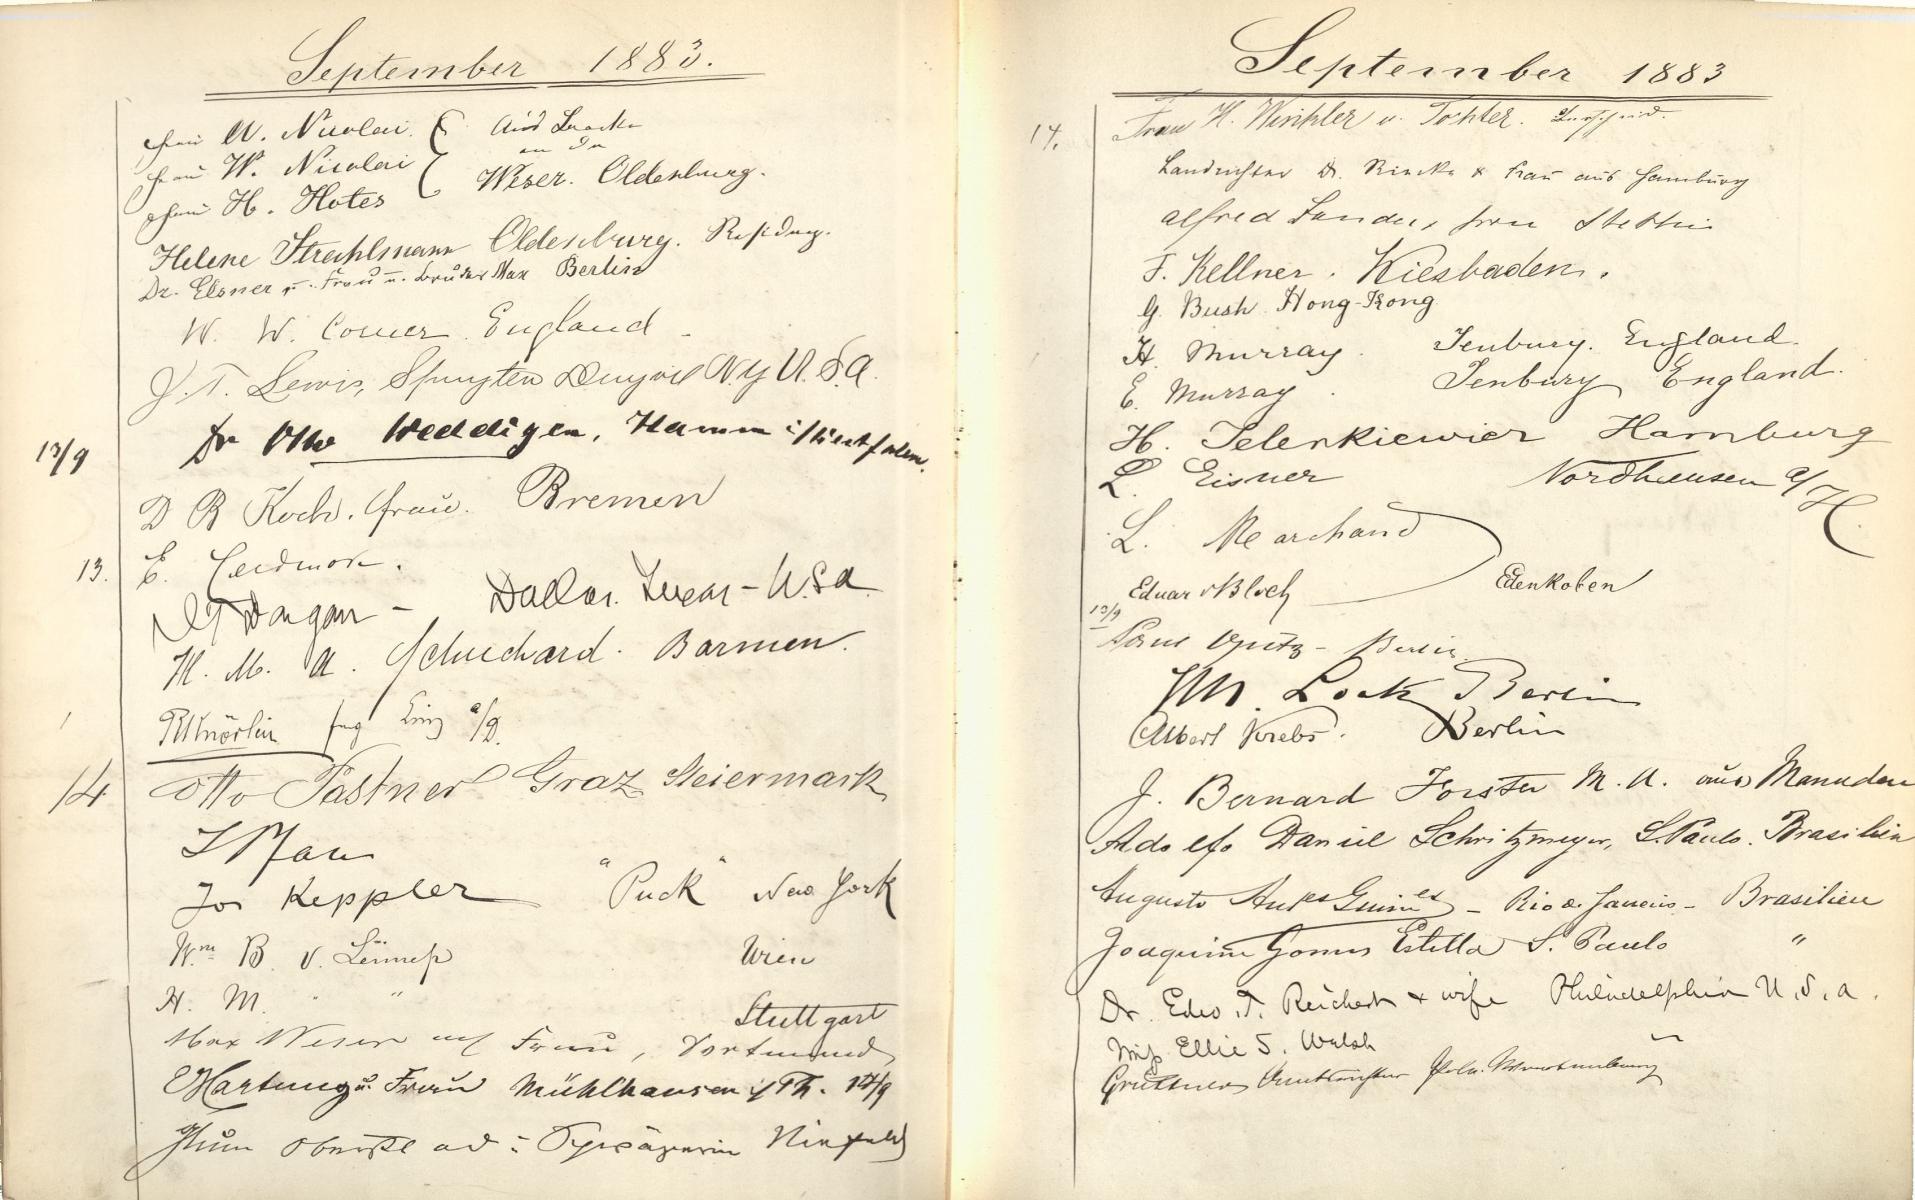 September 1883.
Frau A. Nicolai. aus Brake
an der
Frau W. Nicolai
Weser. Oldenburg.
Frau H. Hotes
Helene Strahlmann Oldenburg. Residenz.
Dr. Elsner u. Frau u. Bruder Max Berlin
W. W. Comer England
J. T. Lewis, Spuyten Duyvil N.Y U.S.A.
13/9 Dr Otto Weddigen, Hamm i/Westfalen.
D B Koch. Frau. Bremen
13. E.
Dargan - Dallas. Texas - U.S.A
H. M. A. Schuchard. Barmen.
14 Otto Pastner Graz Steiermark
Jos Keppler "Puck" New York
Wm B. v. Lennep Wien
H. M. " "
Stuttgart
Max Weser Frau, Dortmund
Hartung u. Frau Mühlhausen i/Th. 14/9
September 1883
14. Frau H. Winkler u. Tochter.
Landrichter Dr. Frau aus Hamburg
Alfred Stettin
F. Kellner. Wiesbaden.
G. Bush Hong-Kong
H. Murray. Tenbury. England.
E. Murray. Tenbury England.
H. Hamburg
L. Eisner Nordhausen a/H.
L. Marchand
Eduard Bloch Edenkoben
13/9
Opitz - Berlin
M. Lock Berlin
Albert Krebs. Berlin
J. Bernard Forster M.A. aus Manuden
Adolfo Daniel Schritzmeyer, S. Paulo. Brasilien
Augusto - Rio de Janeiro - Brasilien
Joaquim Gomes Estella S. Paulo "
Dr. Edw. T. Reichert & wife Philadelphia U.S.A.
Miss Ellie S. Walsh "